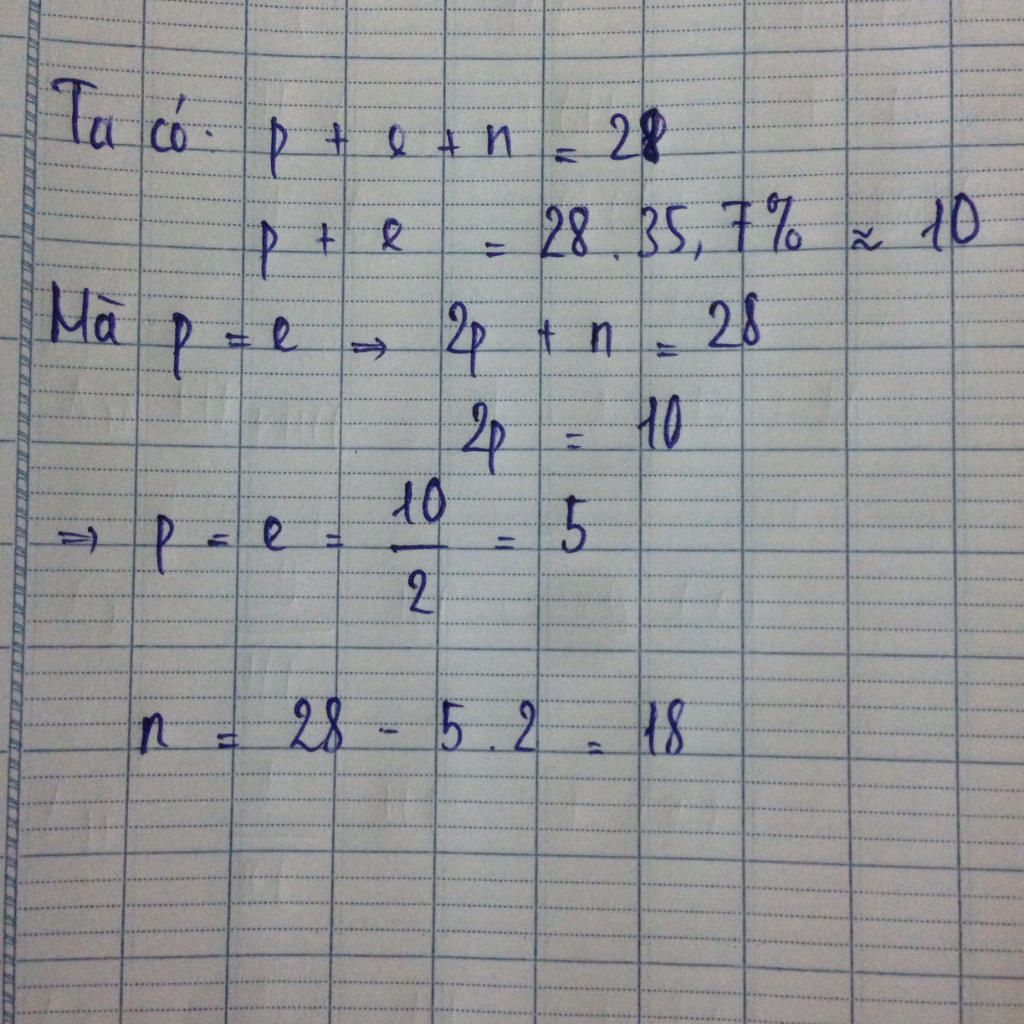 Ta có: p + e + n = 28
p + e = 28 . 35,7% ≈ 10
Mà p = e ⇒ 2p + n = 28
2p = 10
⇒ p = e = 10/2 = 5
n = 28 - 5 . 2 = 18